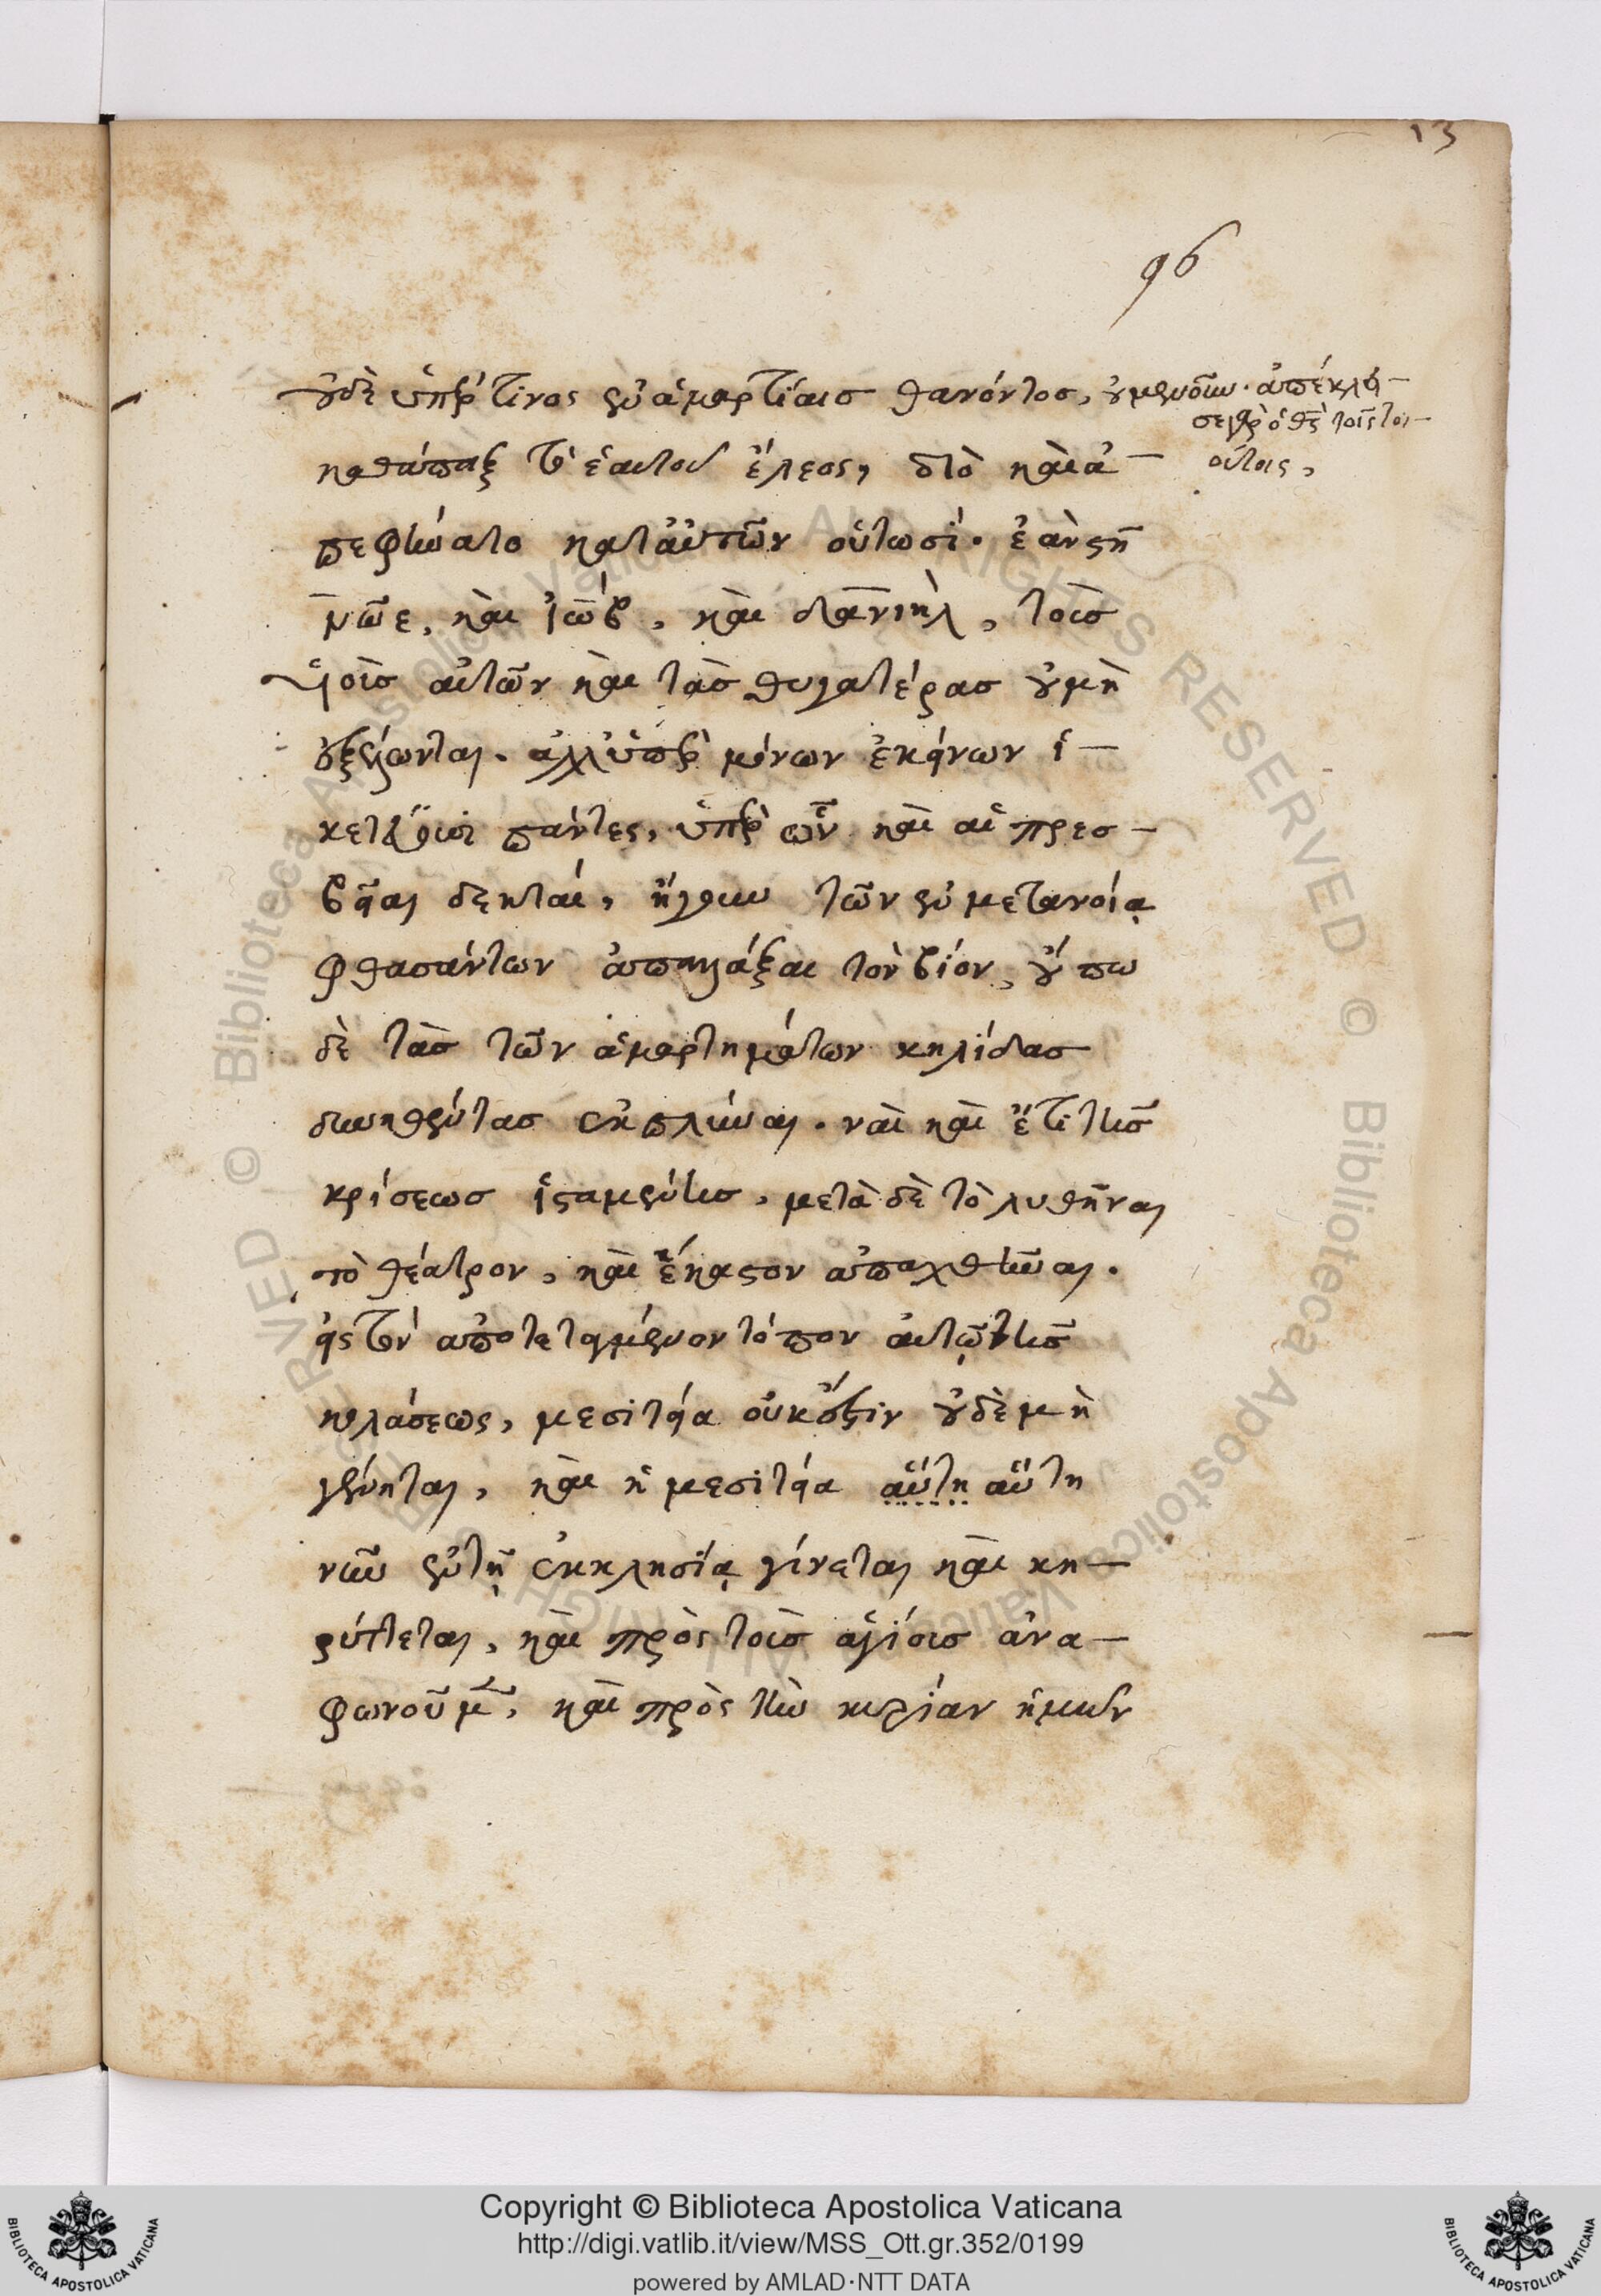 13
96
οὐδὲ ὑπέρ τινος ἐν ἁμαρτίαις θανόντος, οὐμενοῦν. ἀπέκλει-
σε γὰρ ὁ θς τοῖς τοι-
ούτοις,
καθάπαξ τὸ ἑαυτοῦ ἔλεος, διὸ καὶ ἀ-
πεφήνατο κατ' αὐτῶν οὑτωσί. ἐὰν στῆ
νῶε, καὶ ἰώβ, καὶ δανιὴλ, τοὺς
υἱοὺς αὐτῶν καὶ τὰς θυγατέρας οὐ μὴ
ἐξέλωνται. ἀλλ' ὑπὲρ μόνων ἐκείνων ἱ-
κετεύουσι πάντες, ὑπὲρ ὧν καὶ αἱ πρεσ-
βεῖαι δεκταί, ἤγουν τῶν ἐν μετανοίᾳ
φθασάντων ἀπαλλάξαι τὸν βίον, οὔπω
δὲ τὰς τῶν ἁμαρτημάτων κηλίδας
δυνηθέντας ἐκπλύναι. ναὶ καὶ ἔτι τῆς
κρίσεως ἱσταμένης, μετὰ δὲ τὸ λυθῆναι
τὸ θέατρον, καὶ ἕκαστον ἀπαχθῆναι.
εἰς τὸν ἀποτεταγμένον τόπον αὐτῷ τῆς
κολάσεως, μεσιτεία οὐκ ἔστιν οὐδὲ μὴ
γένηται, καὶ ἡ μεσιτεία αὕτη αὕτη
νῦν ἐν τῇ ἐκκλησίᾳ γίνεται καὶ κη-
ρύττεται, καὶ πρὸς τοὺς ἁγίους ἀνα-
φωνοῦμ, καὶ πρὸς τὴν κυρίαν ἡμῶν
Copyright © Biblioteca Apostolica Vaticana
http://digi.vatlib.it/view/MSS_Ott.gr.352/0199
powered by AMLAD·NTT DATA
BIBLIOTECA APOSTOLICA VATICANA
BIBLIOTECA APOSTOLICA VATICANA